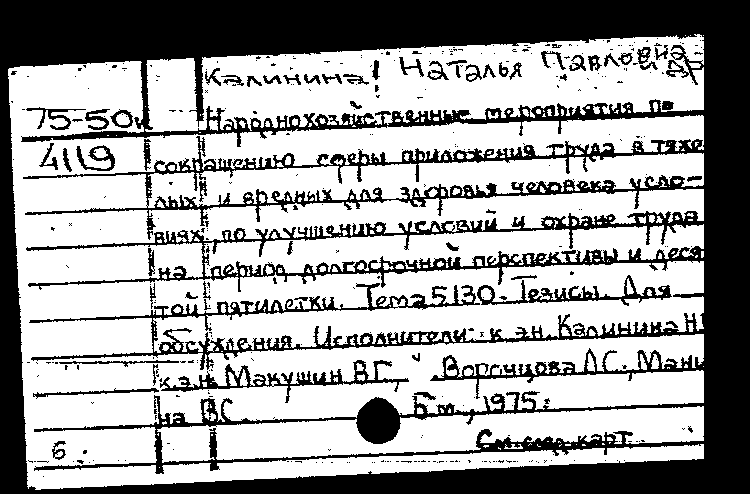 Калинина! Наталья Павловна
и др
75-50к Народнохозяйственные мероприятия по
4119 сокращению сферы приложения труда в тяже
лых и вредных для здоровья человека усло-
виях, по улучшению условий и охране труда
на период долгосрочной перспективы и деся
той пятилетки. Тема 5130. Тезисы. Для
обсуждения. Исполнители: к.эн. Калинина Н
к.э.н. Макушин ВГ, " Воронцова ЛС., Мани
на ВС. Б.м., 1975.
6. См. след. карт.